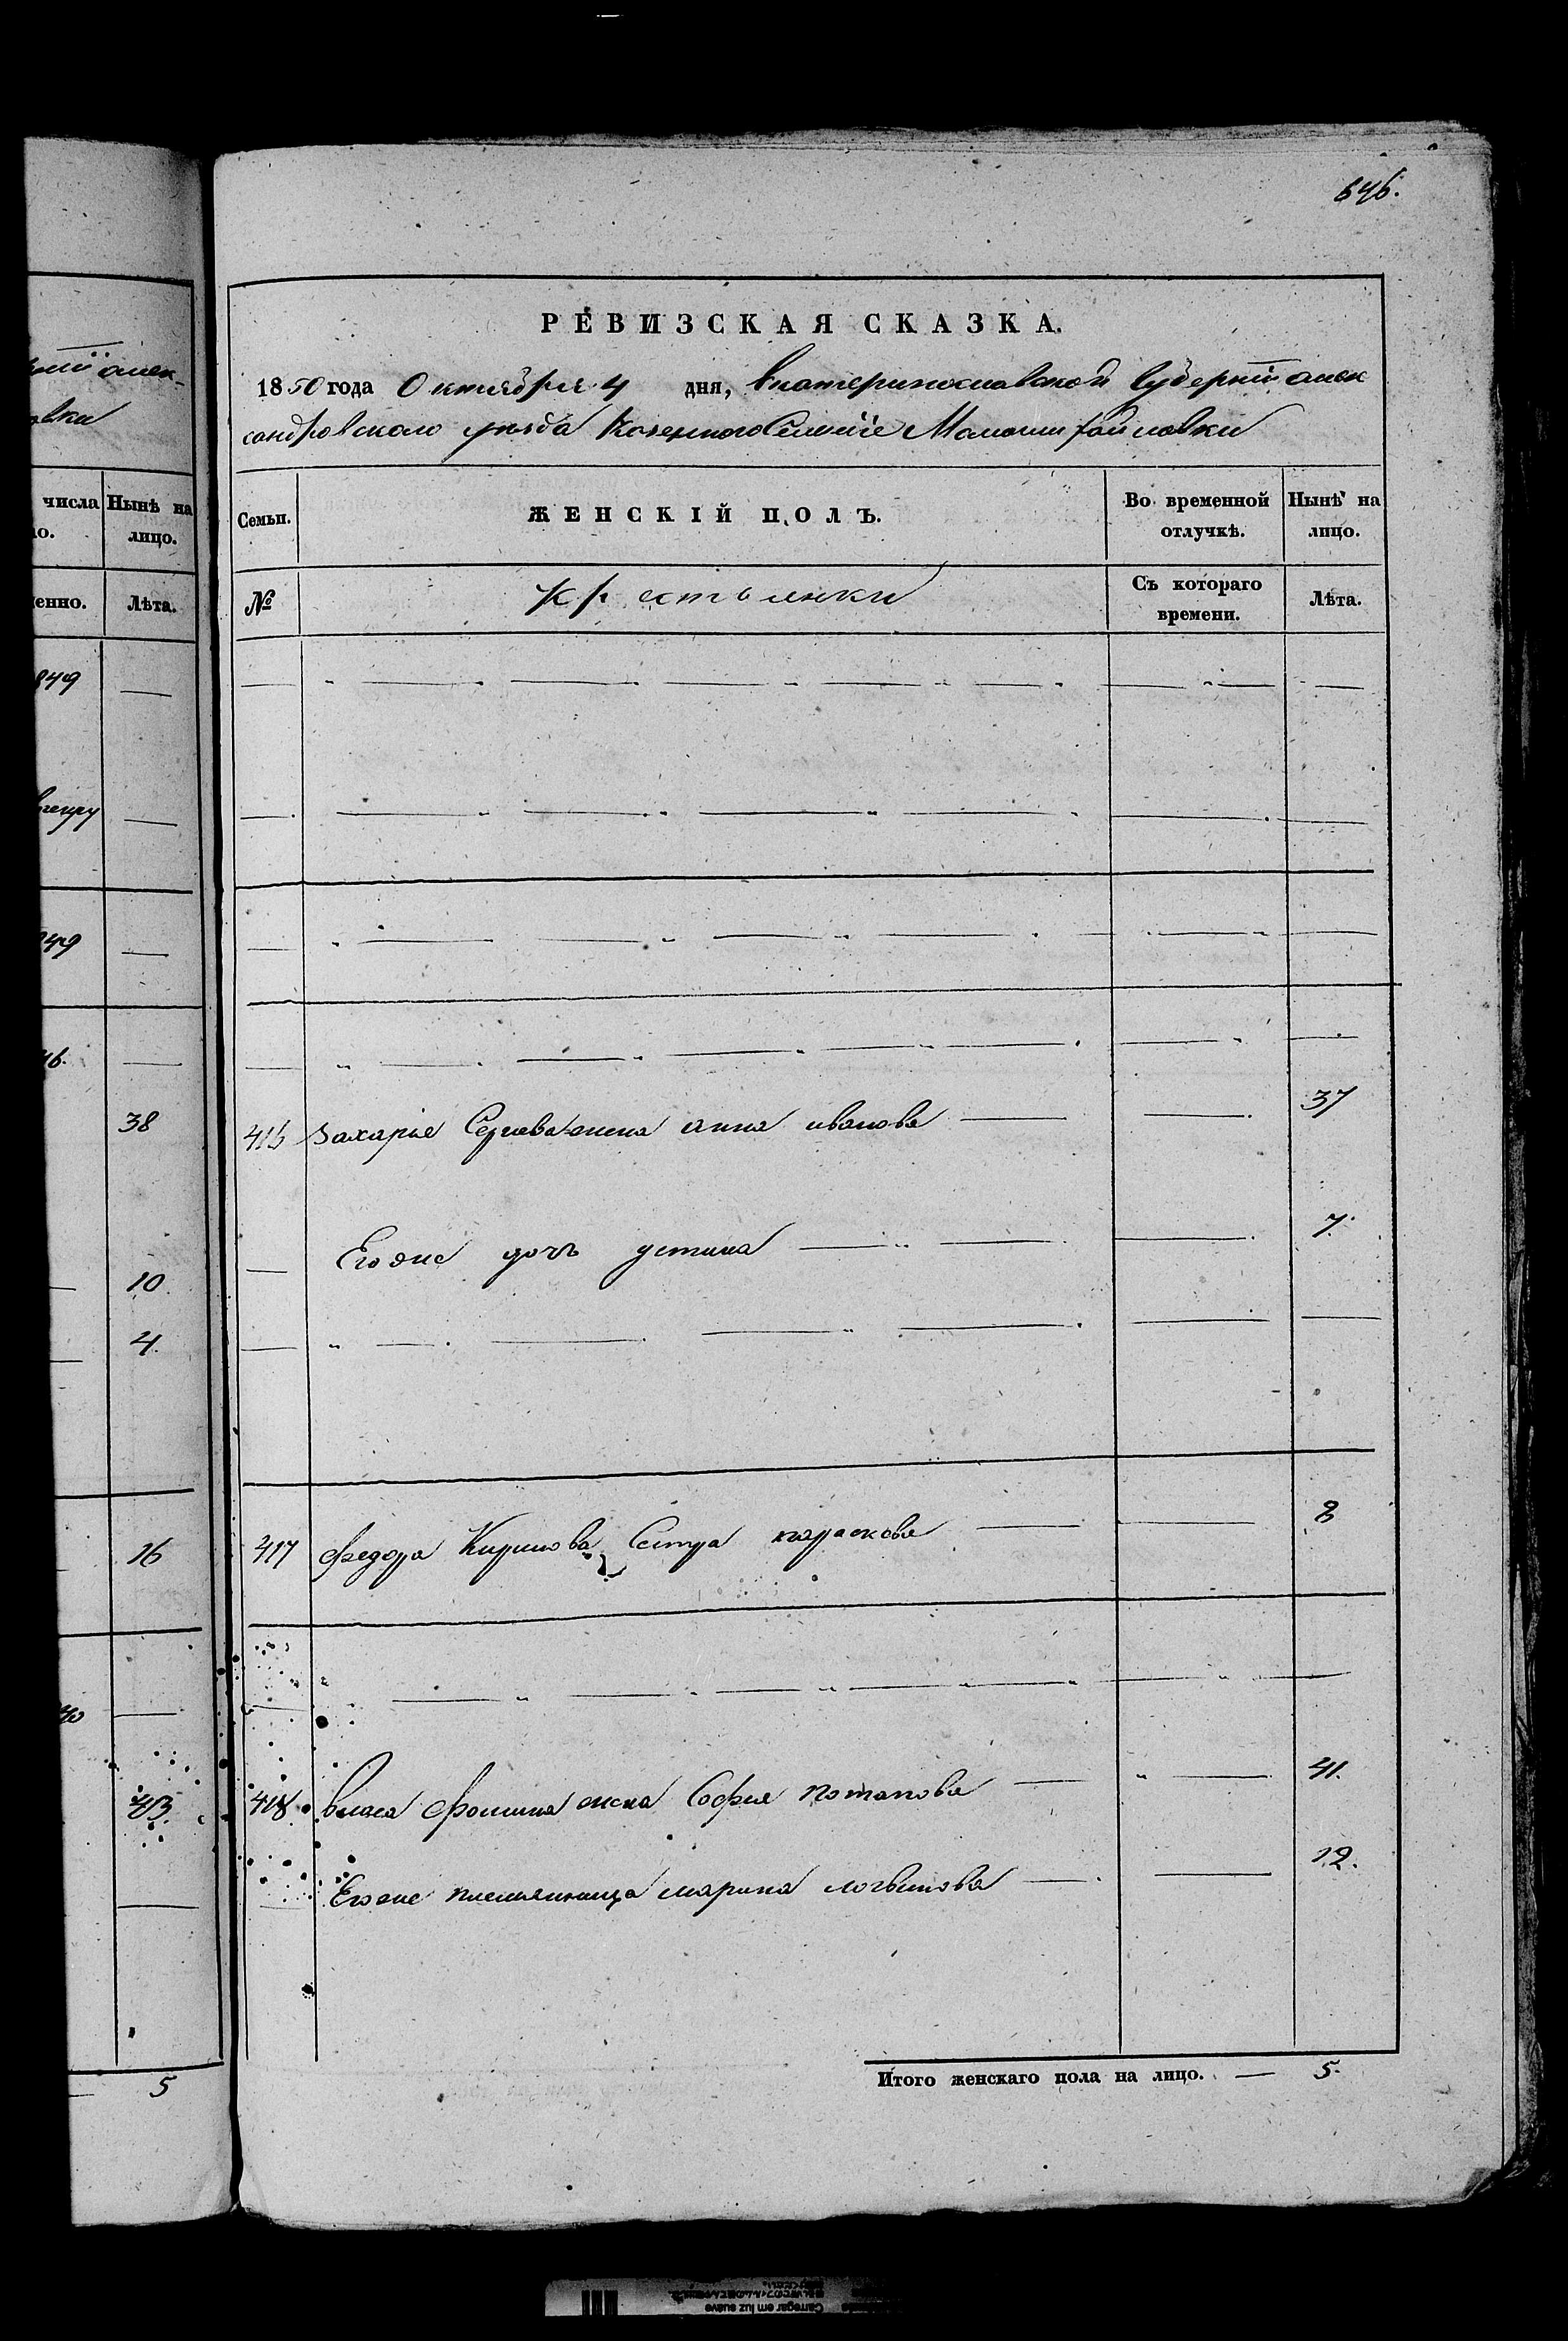 646.
РЕВИЗСКАЯ СКАЗКА.
1850 года Октября 4 дня, Екатеринославской Губернiи алек
сандровскаго уезда Казенного Селенiе Маломихайловки
Семьи. ЖЕНСКІЙ ПОЛЪ. Во временной отлучкѣ. Нынѣ на лицо.
№ крестьянки Съ котораго времени. Лѣта.
416 Захарiя Сергеева жена анна иванова 37
Его же дочь устина 7.
417 Федора Кирилова Сестра параскова 8
418. власа Фомина жена Софья потапова 41.
Его же племянница марина логвинова 12.
Итого женскаго пола на лицо. — 5.
алек-
вки
числа Нынѣ на
ло. лицо.
менно. Лѣта.
849
849
46.
38
10
4.
16
40
43.
5